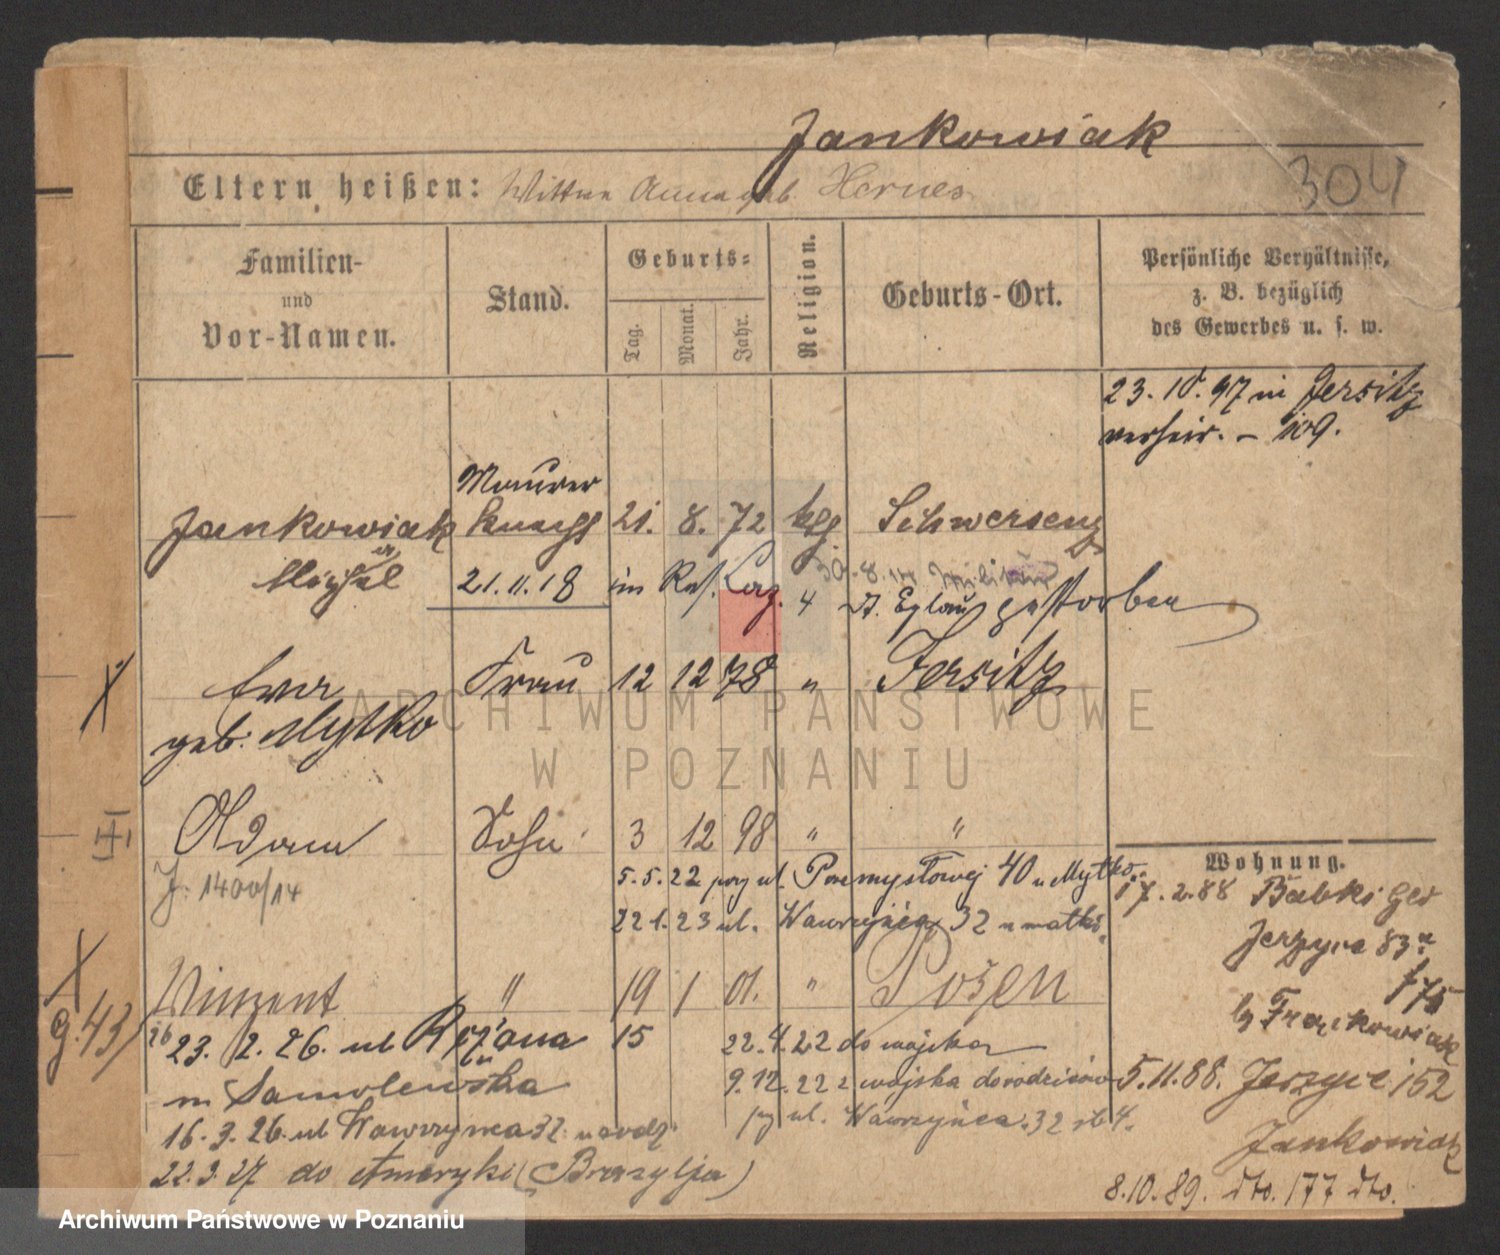 Jankowiak
304
Eltern heißen: Wittwe Anna geb. Hernes
Familien-
und
Vor-Namen.
Stand.
Geburts-
Tag.
Monat.
Jahr.
Religion.
Geburts-Ort.
Persönliche Verhältnisse,
z. B. bezüglich
des Gewerbes u. s. w.
23. 10. 97 in Jersitz
verheir. – 109.
Maurer
Jankowiak Knecht 21. 8. 72 ktg Schwersenz
Michael
21.11.18 im Res. Laz. 4 Dt. Eylau gestorben
Ewa Frau 12 12 78 " Jersitz
geb. Mytko
Adam Sohn 3 12 98 " "
J. 1400/14
5.5.22 przy ul. Przemysłowej 40 u Mytko
22.1.23 ul. Wawrzyńca 32 u matki
Vinzent " 19 1 01. " Posen
g. 43
23. 2. 26. ul Różana 15
u Samolewska
16.3.26. ul Wawrzyńca 32 u rodz
22.3.27 do Ameryki (Brazylja)
22.4.22 do wojska
9.12.22 z wojska do rodziców
przy ul. Wawrzyńca 32
Wohnung.
17.2.88 Babki
Jerzyce 83
f 75
by Frankowiak
5.11.88. Jerzyce 152
Jankowiak
8.10.89. dto. 177 dto.
ARCHIWUM PAŃSTWOWE
W POZNANIU
Archiwum Państwowe w Poznaniu